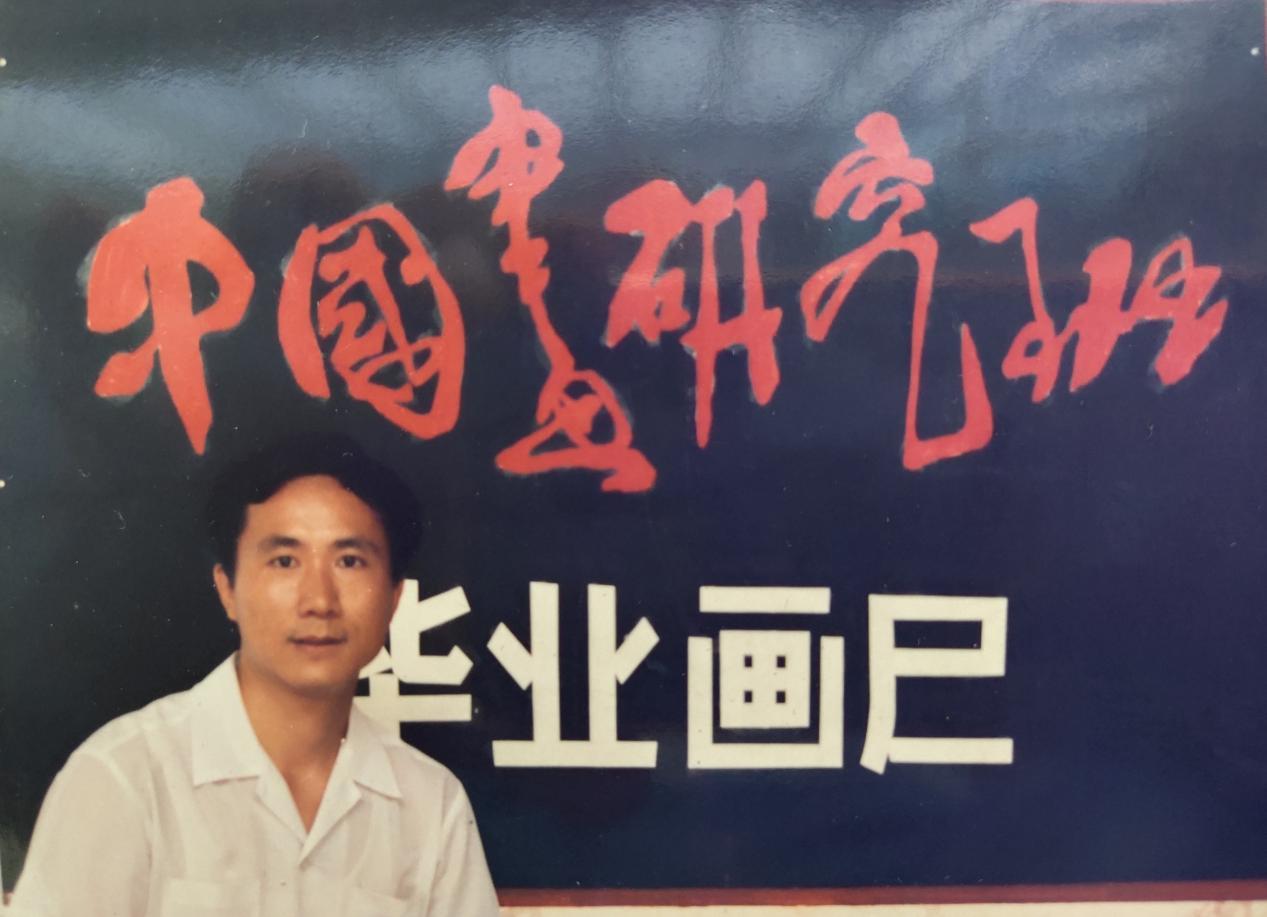 中國畫研究班
毕业画展